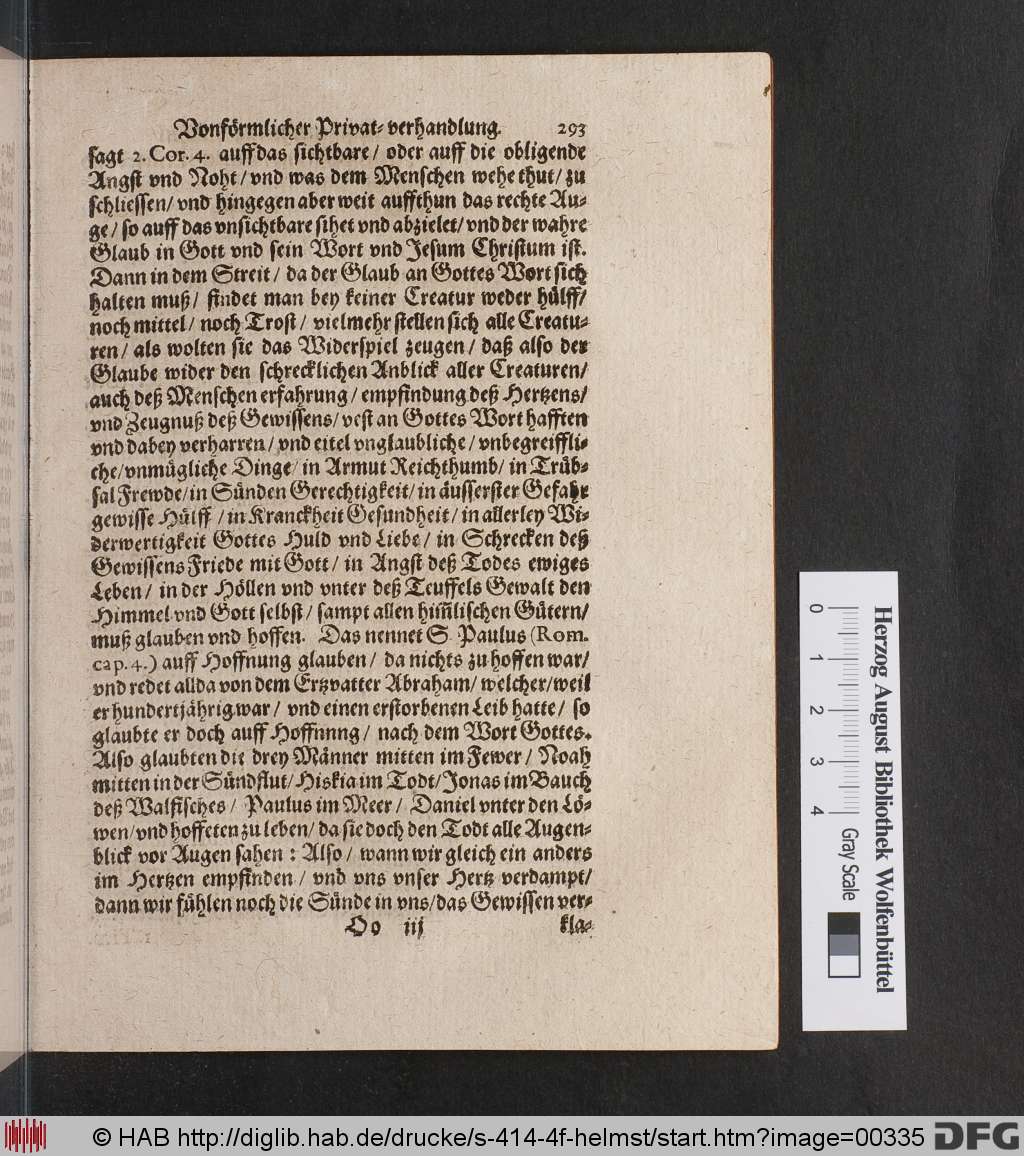 Vonförmlicher Privat-verhandlung. 293
sagt 2. Cor. 4. auff das sichtbare / oder auff die obligende
Angst vnd Noht / vnd was dem Menschen wehe thut / zu
schliessen / vnd hingegen aber weit auffthun das rechte Au-
ge / so auff das vnsichtbare sihet vnd abzielet / vnd der wahre
Glaub in Gott vnd sein Wort vnd Jesum Christum ist.
Dann in dem Streit / da der Glaub an Gottes Wort sich
halten muß / findet man bey keiner Creatur weder hülff /
noch mittel / noch Trost / vielmehr stellen sich alle Creatu-
ren / als wolten sie das Widerspiel zeugen / daß also der
Glaube wider den schrecklichen Anblick aller Creaturen /
auch deß Menschen erfahrung / empfindung deß Hertzens /
vnd Zeugnuß deß Gewissens / vest an Gottes Wort hafften
vnd dabey verharren / vnd eitel vnglaubliche / vnbegreiffli-
che / vnmügliche Dinge / in Armut Reichthumb / in Trüb-
sal Frewde / in Sünden Gerechtigkeit / in äusserster Gefahr
gewisse Hülff / in Kranckheit Gesundheit / in allerley Wi-
derwertigkeit Gottes Huld vnd Liebe / in Schrecken deß
Gewissens Friede mit Gott / in Angst deß Todes ewiges
Leben / in der Höllen vnd vnter deß Teuffels Gewalt den
Himmel vnd Gott selbst / sampt allen him̃lischen Gütern /
muß glauben vnd hoffen. Das nennet S. Paulus (Rom.
cap. 4.) auff Hoffnung glauben / da nichts zu hoffen war /
vnd redet allda von dem Ertzvatter Abraham / welcher / weil
er hundertjährig war / vnd einen erstorbenen Leib hatte / so
glaubte er doch auff Hoffnnng / nach dem Wort Gottes.
Also glaubten die drey Männer mitten im Fewer / Noah
mitten in der Sündflut / Hiskia im Todt / Jonas im Bauch
deß Walfisches / Paulus im Meer / Daniel vnter den Lö-
wen / vnd hoffeten zu leben / da sie doch den Todt alle Augen-
blick vor Augen sahen : Also / wann wir gleich ein anders
im Hertzen empfinden / vnd vns vnser Hertz verdampt /
dann wir fühlen noch die Sünde in vns / das Gewissen ver-
Oo iij kla-
0 1 2 3 4 Gray Scale
Herzog August Bibliothek Wolfenbüttel
© HAB http://diglib.hab.de/drucke/s-414-4f-helmst/start.htm?image=00335 DFG